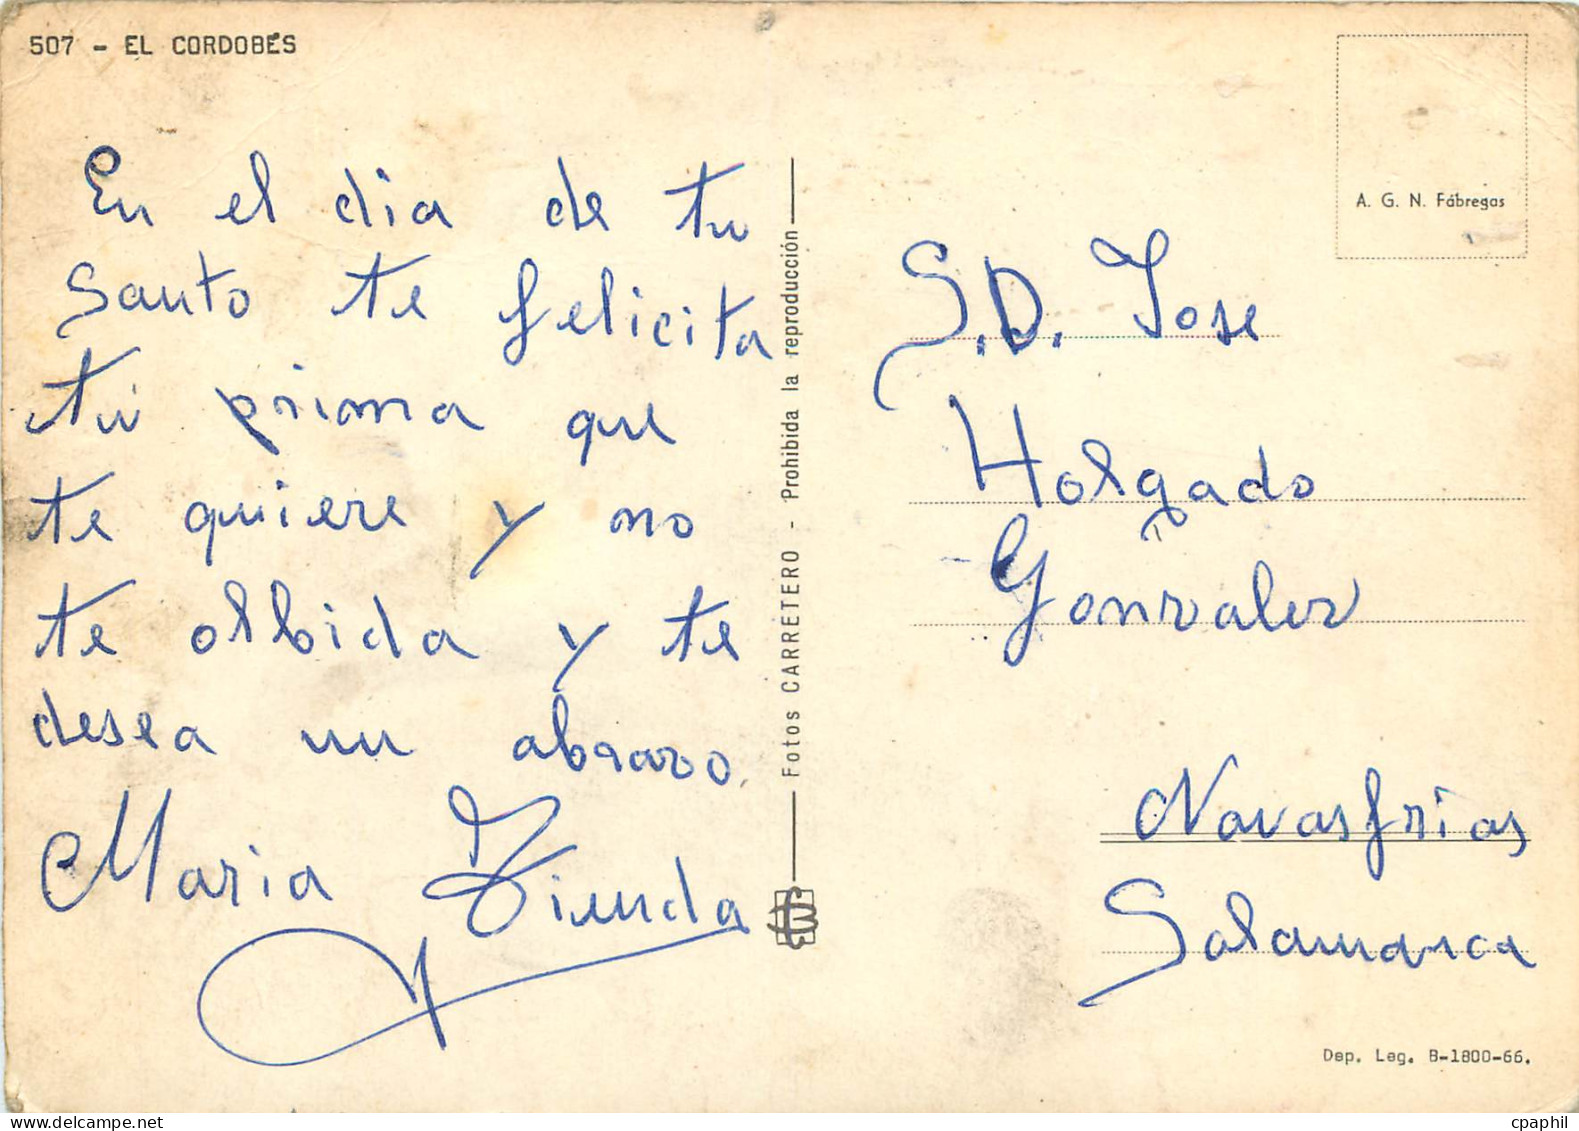 507 - EL CORDOBÉS
En el dia de tu
Santo te felicita
tu prima que
te quiere y no
te olbida y te
desea un abrazo
Maria Tienda
Fotos CARRETERO - Prohibida la reproducción
A. G. N. Fábregas
S.D. Jose
Holgado
Gonzalez
Navasfrias
Salamanca
Dep. Leg. B-1800-66.
cpaphil